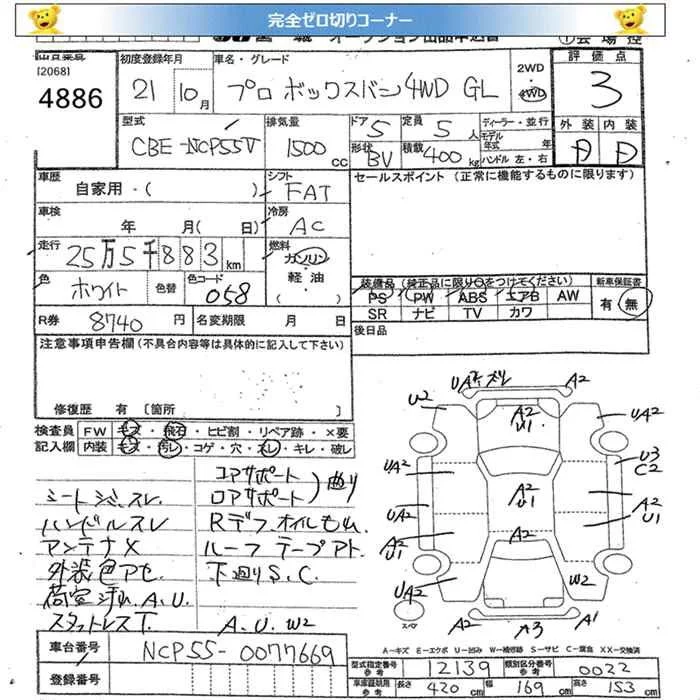 完全ゼロ切りコーナー
[2068]
4886
初度登録年月
21 10月
車名・グレード
プロボックスバン 4WD GL
2WD
・
4WD
評価点
3
型式
CBE-NCP55V
排気量
1500 cc
ドア 5
形状 BV
定員 5 人
積載 400 kg
ディーラー・並行
モデル
年式 年
ハンドル 左・右
外装 内装
D D
車歴
自家用・( )
シフト
FAT
セールスポイント (正常に機能するものに限ります)
車検
年 月( 日)
冷房
AC
走行
25万5千883km
燃料
ガソリン
・
軽油
色
ホワイト
色替
色コード
058
装備品 (純正品に限り○をつけてください)
PS PW ABS エアB AW
SR ナビ TV カワ
新車保証書
有 無
R券 8740 円
名変期限 月 日
後日品
注意事項申告欄 (不具合内容等は具体的に記入して下さい)
修復歴 有 〔箇所 〕
検査員 FW キズ・飛石・ヒビ割・リペア跡・×要
記入欄 内装 キズ・汚レ・コゲ・穴・スレ・キレ・破レ
コアサポート
ロアサポート
曲り
シートジミ、スレ
ハンドルスレ
Rデフオイルもれ
アンテナ×
ルーフ テープアト
外装色アセ
下廻りS.C.
荷室汚れ.A.U.
スタットレスT.
A.U.W2
UA2 ズレ
A2
U2
A2
U1
UA2
U3
C2
UA2
A2
U1
UA2
A2
U1
A2
U1
A2
UA2
W2
スペア
A2
A3
A1
A=キズ E=エクボ U=凹み W=補修跡 S=サビ C=腐食 XX=交換済
車台番号
NCP55-0077669
登録番号
型式指定番号
参考
12139
類別区分番号
参考
0022
車庫証明用
参考
長さ 420 cm
幅 169 cm
高さ 153 cm